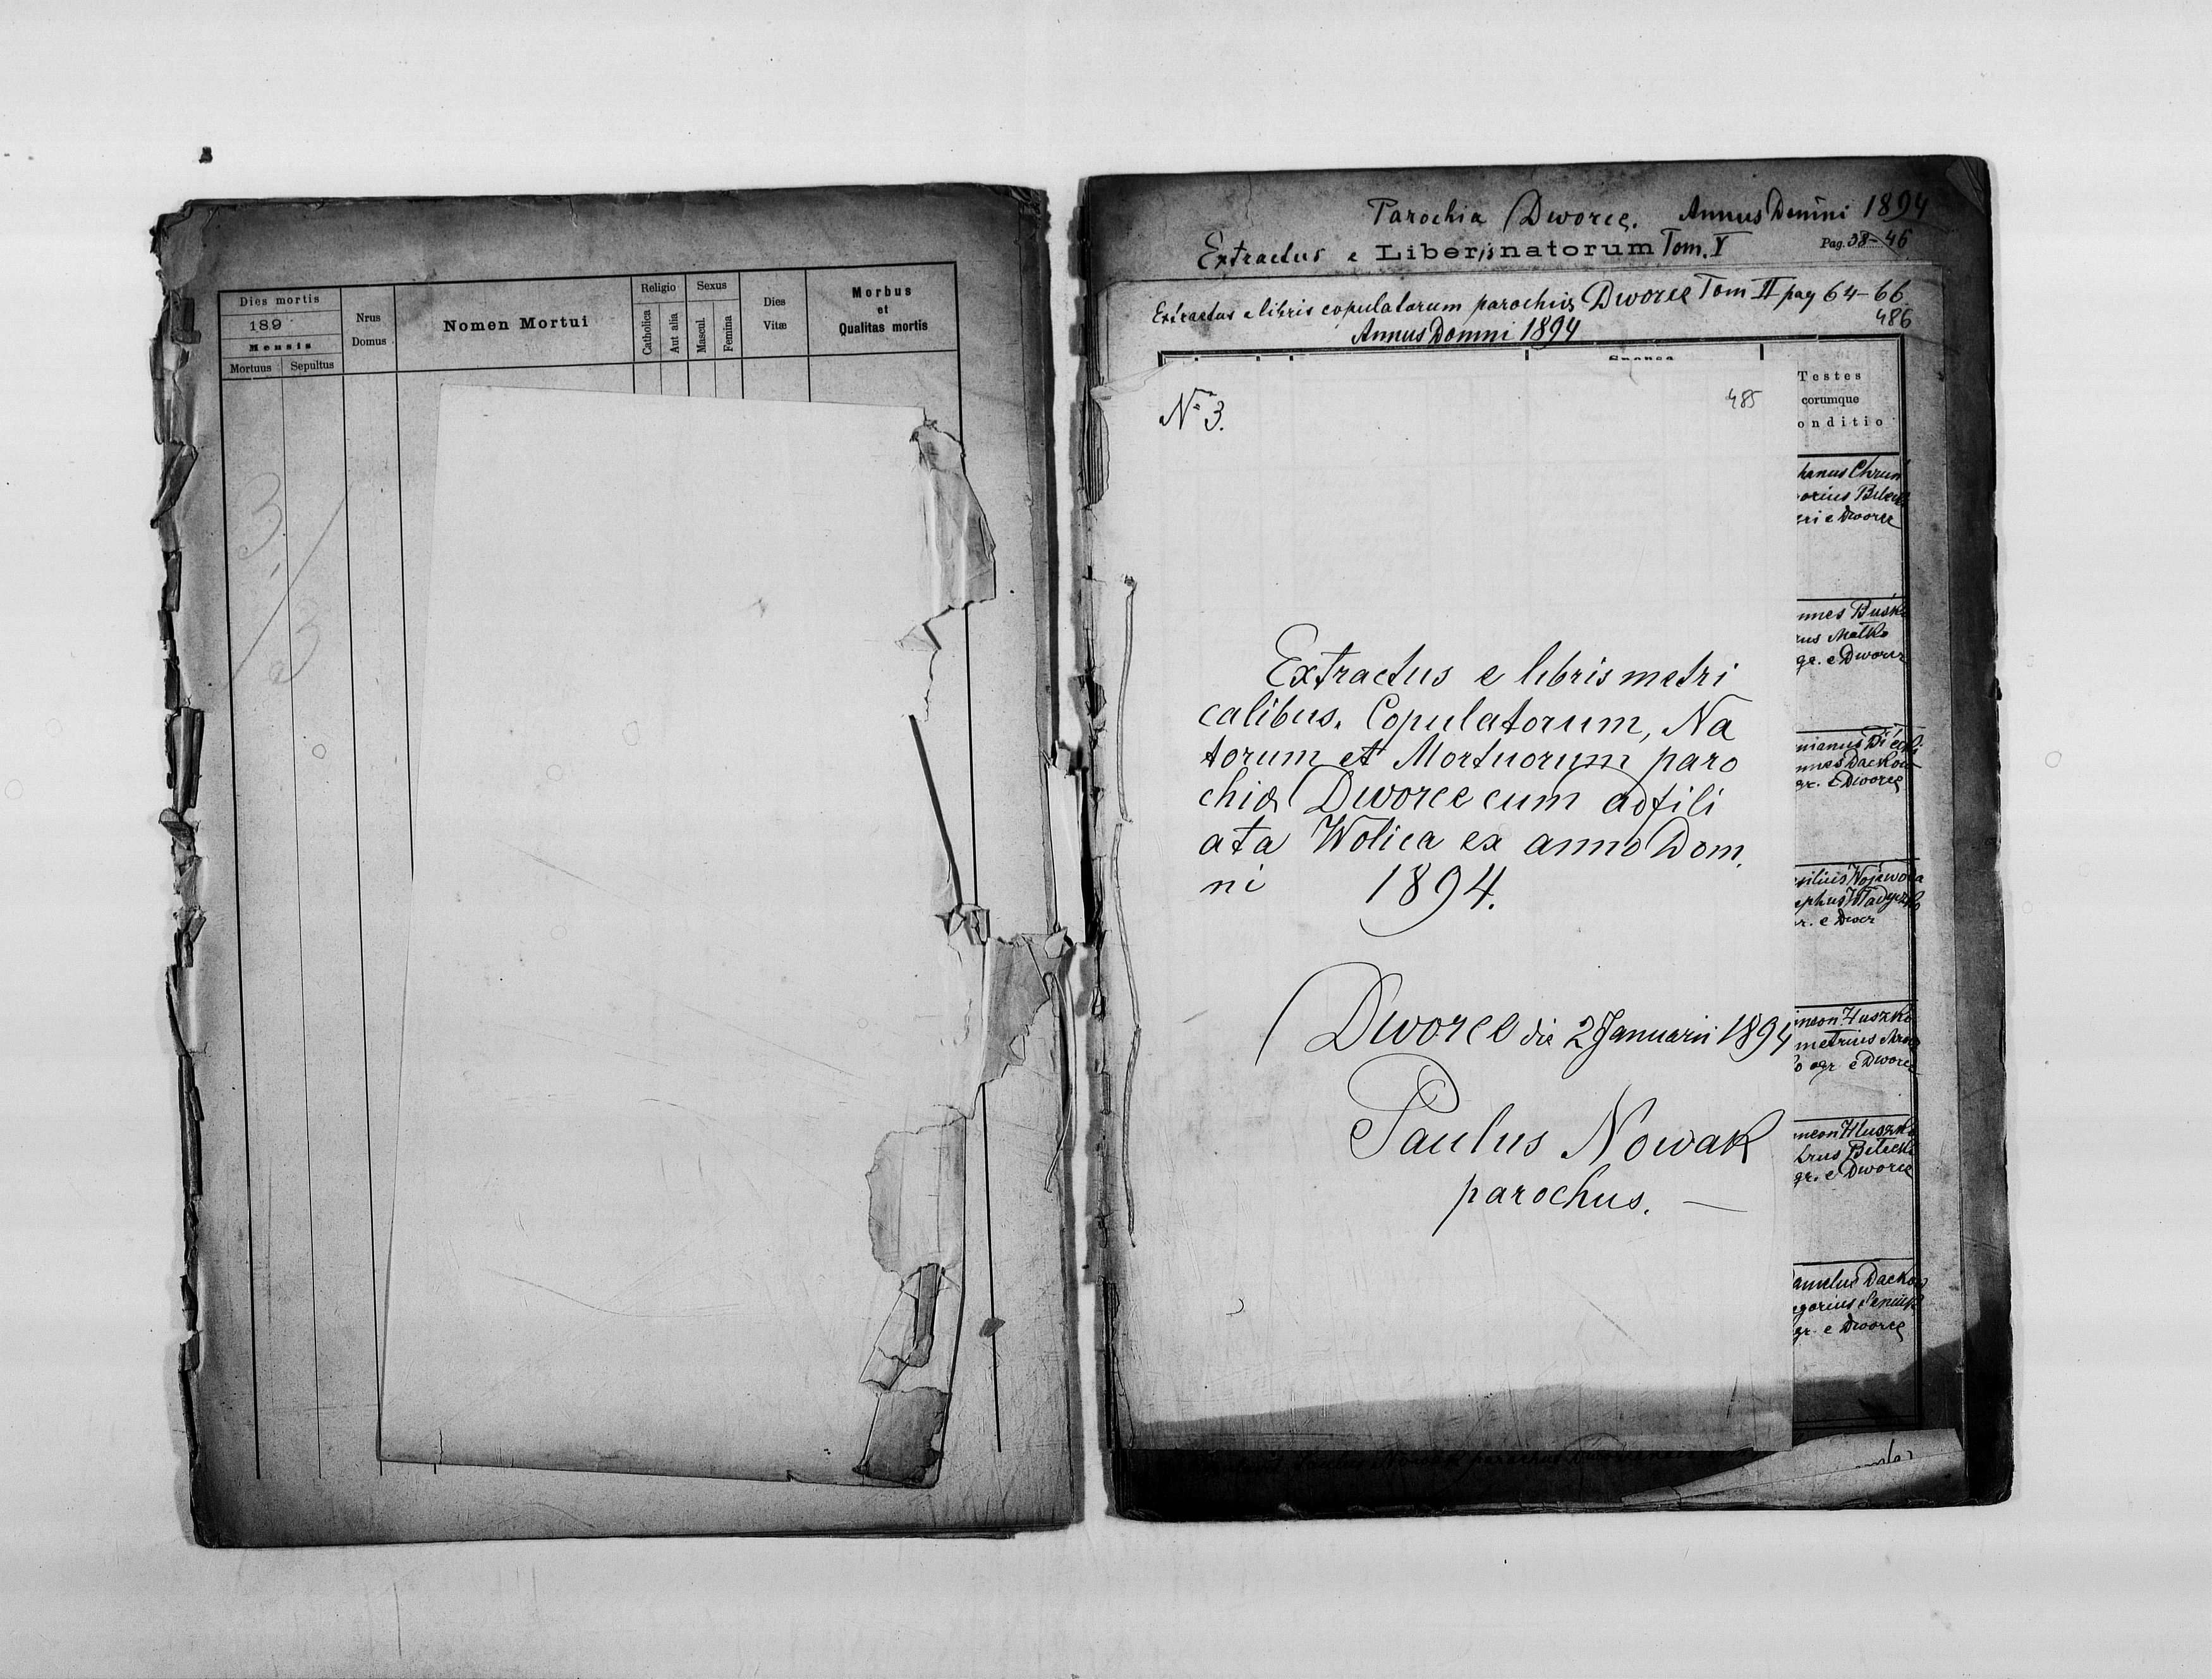 Dies mortis
189
Mensis
Mortuus Sepultus
Nrus
Domus
Nomen Mortui
Religio
Catholica
Aut alia
Sexus
Mascul.
Femina
Dies
Vitæ
Morbus
et
Qualitas mortis
3
3
Parochia Dworce. Annus Domini 1894
Extractus e Liber is natorum Tom. V Pag. 38-46
Extractus e libris copulatorum parochiæ Dworce Tom II pag 64-66
486
Annus Domni 1894
Sponsa
Nº 3.
485
Extractus e libris metri
calibus. Copulatorum, Na
torum et Mortuorum paro
chiæ Dworce cum adfili
ata Wolica ex anno Dom.
ni 1894.
Dworce die 2 Januarii 1894
Paulus Nowak
parochus. —
Testes
eorumque
onditio
hanus Chrun
orius Bilecki
eri e Dworce
nnes Busko
rus Matko
gr. e Dworce
nianus
nnes Dackow
gr. e Dworce
silius Wojewoda
ephus
r. e Dwor
meon Huszko
metrius
o agr e Dworce
meon Huszko
trus Bilecki
gr. e Dworce
anielus Dackow
egorius Seniuk
gr. e Dworce